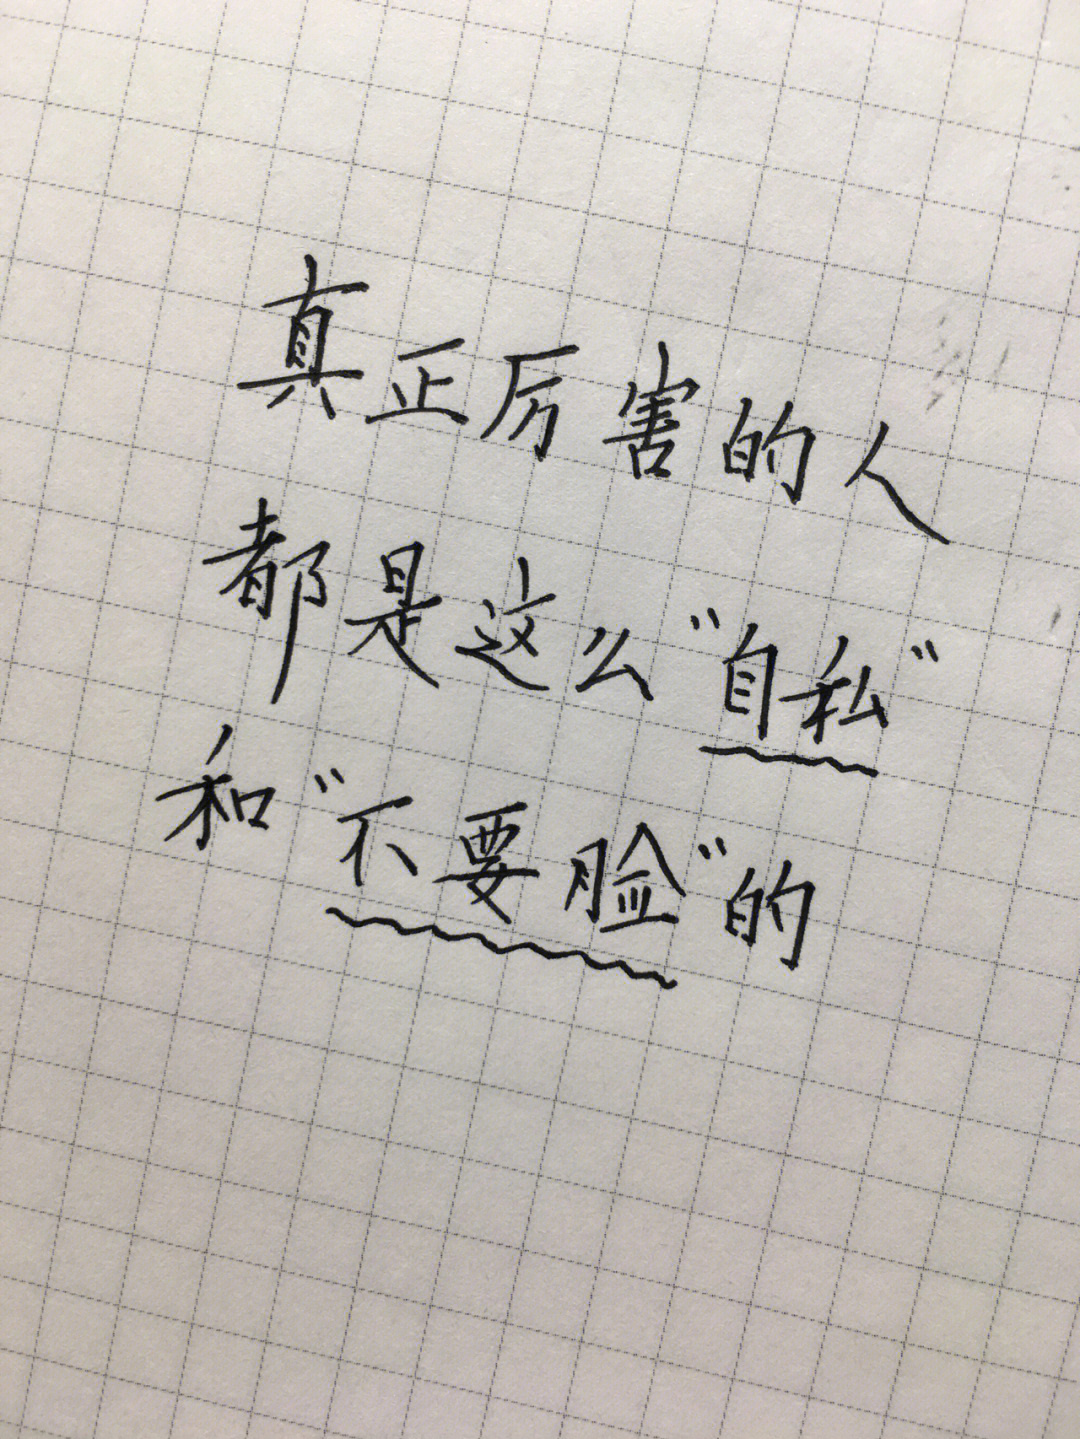 真正厉害的人
都是这么"自私"
和"不要脸"的